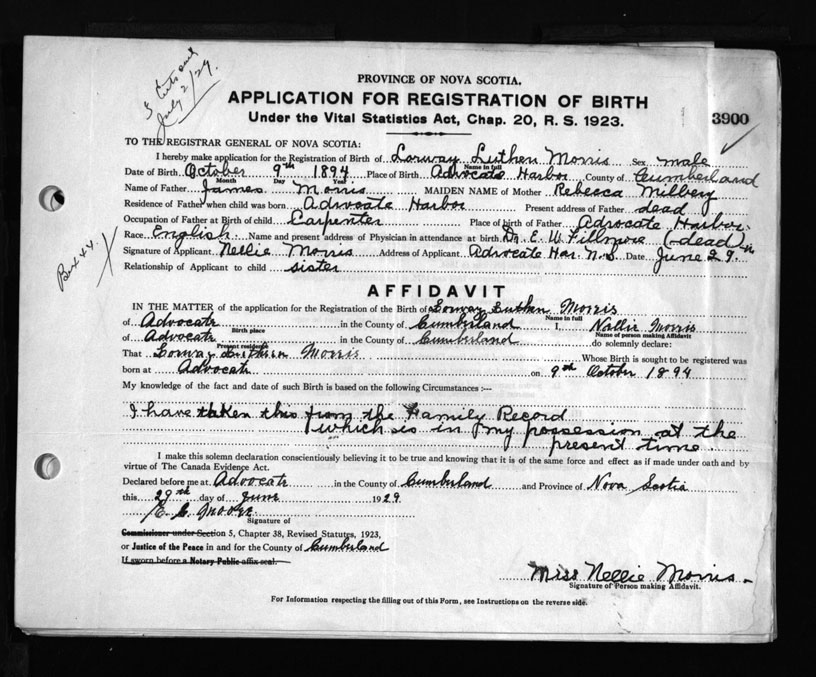 July 2/29.
PROVINCE OF NOVA SCOTIA.
APPLICATION FOR REGISTRATION OF BIRTH
Under the Vital Statistics Act, Chap. 20, R. S. 1923.
3900
TO THE REGISTRAR GENERAL OF NOVA SCOTIA:
I hereby make application for the Registration of Birth of Lorway Luther Morris Sex male
Name in full
Date of Birth October 9th 1894 Place of Birth Advocate Harbor County of Cumberland
Month Day Year
Name of Father James Morris MAIDEN NAME of Mother Rebecca Milbery
Residence of Father when child was born Advocate Harbor Present address of Father dead
Occupation of Father at Birth of child Carpenter Place of birth of Father Advocate Harbor
Race English Name and present address of Physician in attendance at birth Dr. E. W. Fillmore (dead)
Signature of Applicant Nellie Morris Address of Applicant Advocate Har. N.S. Date June 29.
Relationship of Applicant to child sister
Box 44
AFFIDAVIT
IN THE MATTER of the application for the Registration of the Birth of Lorway Luther Morris
Name in full
of Advocate in the County of Cumberland I, Nellie Morris
Birth place Name of person making Affidavit
of Advocate in the County of Cumberland do solemnly declare:
Present residence
That Lorway Luther Morris Whose Birth is sought to be registered was
born at Advocate on 9th October 1894
My knowledge of the fact and date of such Birth is based on the following Circumstances :—
I have taken this from the Family Record
which is in my possession at the
present time.
I make this solemn declaration conscientiously believing it to be true and knowing that it is of the same force and effect as if made under oath and by
virtue of The Canada Evidence Act.
Declared before me at Advocate in the County of Cumberland and Province of Nova Scotia
this 29th day of June 1929
Signature of
Commissioner under Section 5, Chapter 38, Revised Statutes, 1923,
or Justice of the Peace in and for the County of Cumberland
If sworn before a Notary Public affix seal.
Miss Nellie Morris
Signature of Person making Affidavit.
For Information respecting the filling out of this Form, see Instructions on the reverse side.